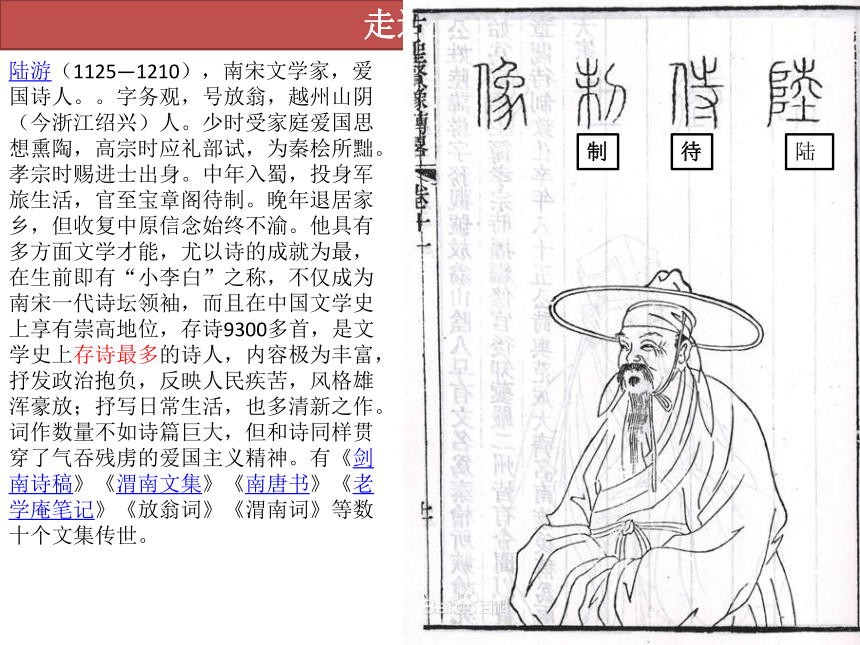 走
陆游（1125—1210），南宋文学家，爱
国诗人。。字务观，号放翁，越州山阴
（今浙江绍兴）人。少时受家庭爱国思
想熏陶，高宗时应礼部试，为秦桧所黜。
孝宗时赐进士出身。中年入蜀，投身军
旅生活，官至宝章阁待制。晚年退居家
乡，但收复中原信念始终不渝。他具有
多方面文学才能，尤以诗的成就为最，
在生前即有“小李白”之称，不仅成为
南宋一代诗坛领袖，而且在中国文学史
上享有崇高地位，存诗9300多首，是文
学史上存诗最多的诗人，内容极为丰富，
抒发政治抱负，反映人民疾苦，风格雄
浑豪放；抒写日常生活，也多清新之作。
词作数量不如诗篇巨大，但和诗同样贯
穿了气吞残虏的爱国主义精神。有《剑
南诗稿》《渭南文集》《南唐书》《老
学庵笔记》《放翁词》《渭南词》等数
十个文集传世。
陸待制像
陆
待
制